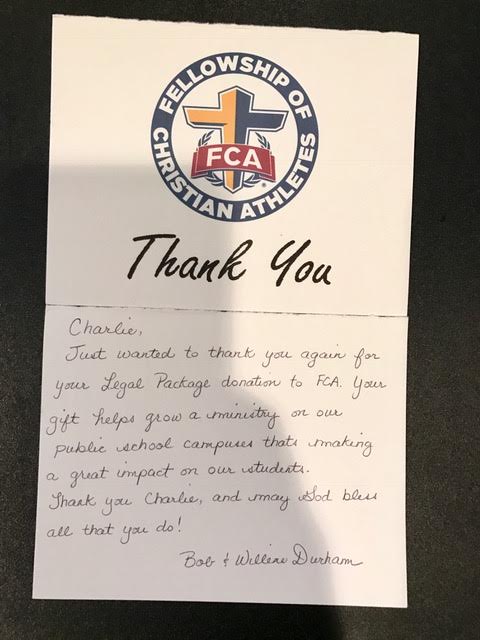 FELLOWSHIP OF
CHRISTIAN ATHLETES
FCA
®
Thank You
Charlie,
Just wanted to thank you again for
your Legal Package donation to FCA. Your
gift helps grow a ministry on our
public school campuses thats making
a great impact on our students.
Thank you Charlie, and may God bless
all that you do!
Bob & Willene Durham